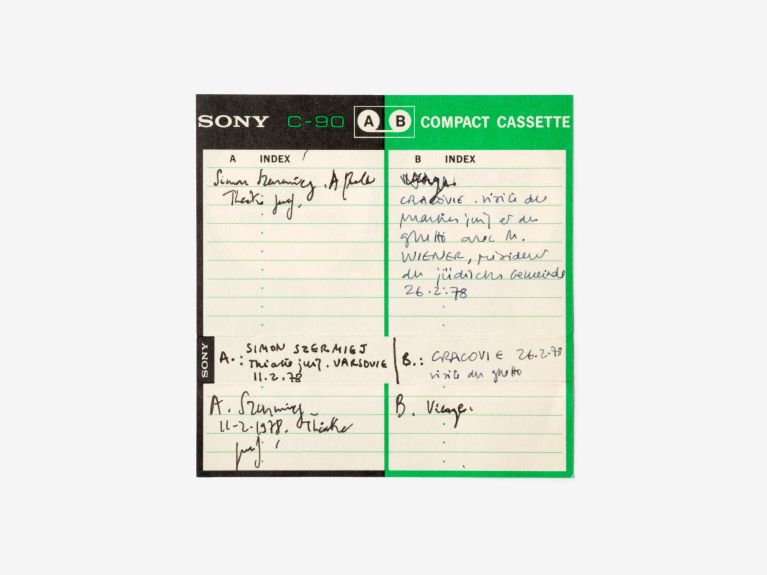 SONY C-90 A B COMPACT CASSETTE
A INDEX
Simon Szermiej. A parlé
Théâtre juif.
B INDEX
CRACOVIE. visite du
quartier juif et du
ghetto avec M.
WIENER, président
der jüdischen Gemeinde
26.2.78
SONY
A.: SIMON SZERMIEJ
Théâtre juif. VARSOVIE
11.2.78
B.: CRACOVIE 26.2.78
visite du ghetto
A. Szermiej
11-2-1978. Théâtre
juif
B. Vierge.